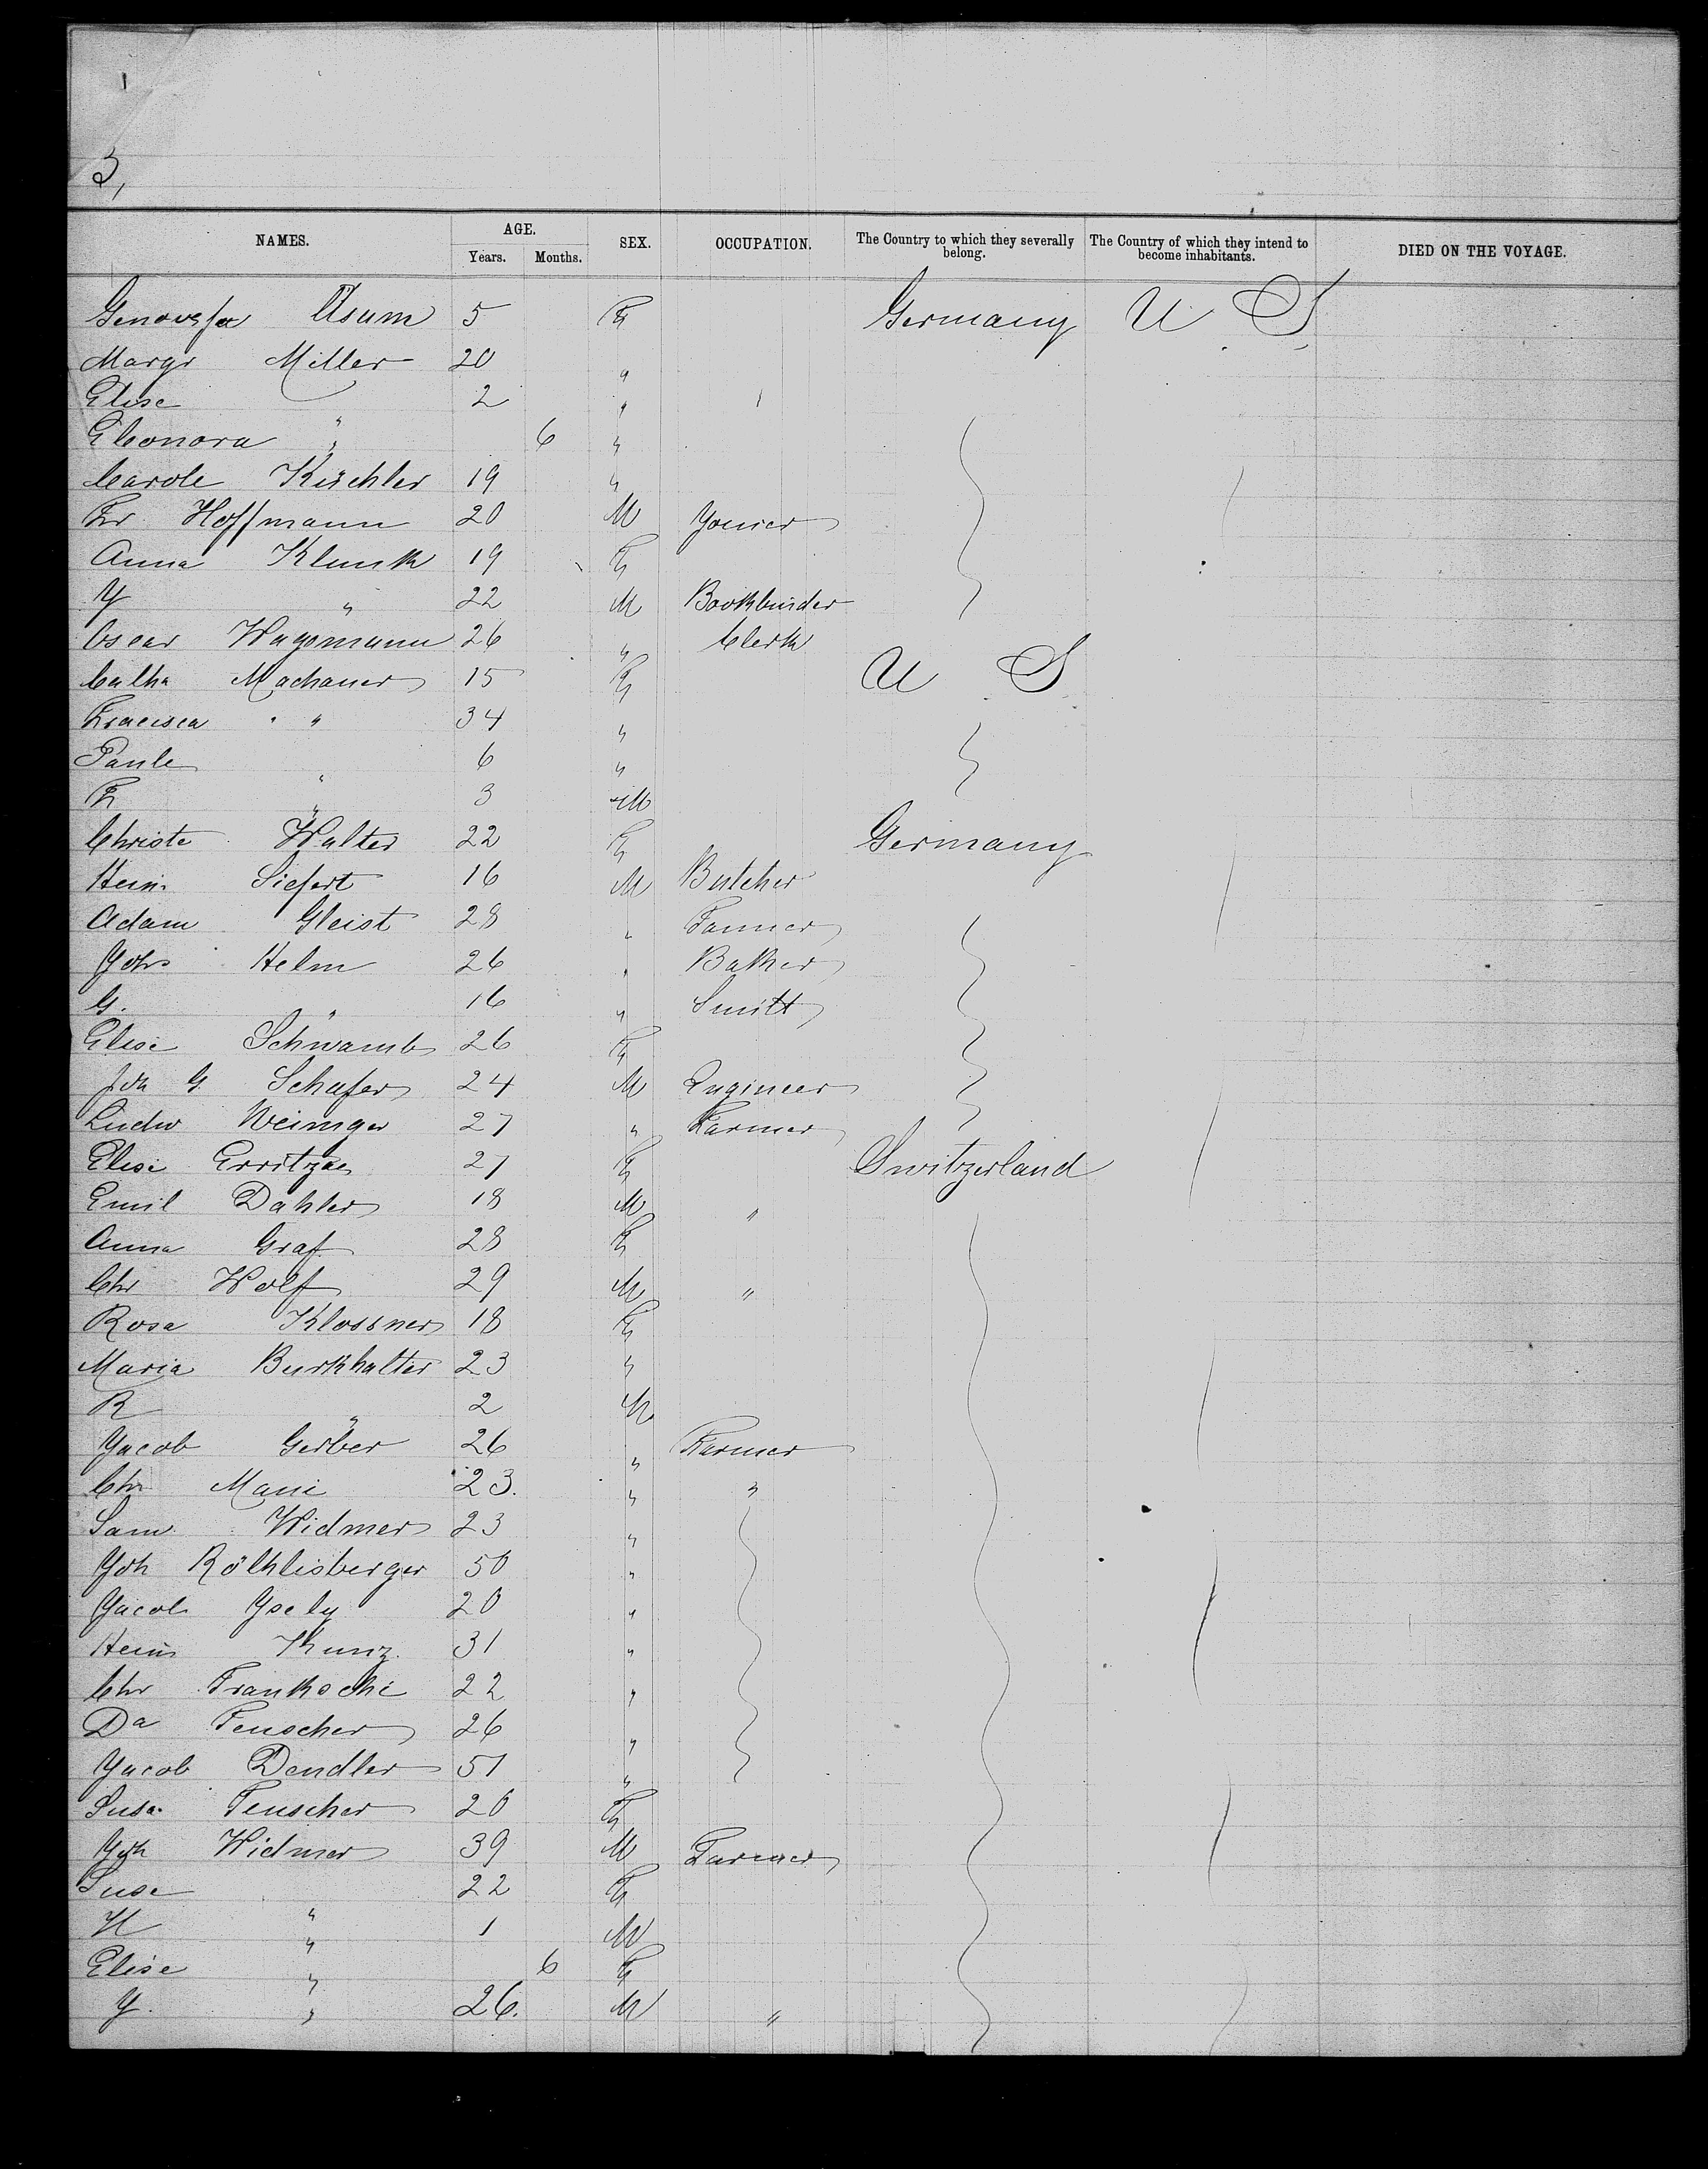 3,
NAMES. AGE. SEX. OCCUPATION. The Country to which they severally belong. The Country of which they intend to become inhabitants. DIED ON THE VOYAGE.
Years. Months.
Genovefa Asum 5 F Germany U S
Margr Miller 20 "
Elise 2 "
Eleonora " 6 "
Carole Küchler 19 "
Fr Hoffmann 20 M Yoiner
Anna Klunk 19 F
Y " 22 M Bookbinder
Oscar Wagemann 26 " Clerk
Catha Machauer 15 F U S
Fracisca " 34 "
Paule " 6 "
F " 3 M
Christe Walter 22 F Germany
Heinr Siefert 16 M Butcher
Adam Gleist 28 " Tanner
Yohs Helm 26 " Baker
G. " 16 " Smitt
Elise Schwamb 26 F
Joh G. Schafer 24 M Engineer
Ludw Weiniger 27 " Farmer
Elise 27 F Switzerland
Emil Dahler 18 M "
Anna Graf 28 F
Chr Wolf 29 M "
Rosa Klossner 18 F
Maria Burkhalter 23 "
R " 2 M
Yacob Gerber 26 " Farmer
Chr Mani 23. " "
Sam Widmer 23 "
Yoh Röthlisberger 50 "
Yacob Ysely 20 "
Heinr Kunz. 31 "
Chr 22 "
Da Teuscher 26 "
Yacob Dendler 51 "
Susa Teuscher 20 F
Yoh Widmer 39 M Farmer
Suse " 22 F
H " 1 M
Elise " 6 F
Y. " 26. M "